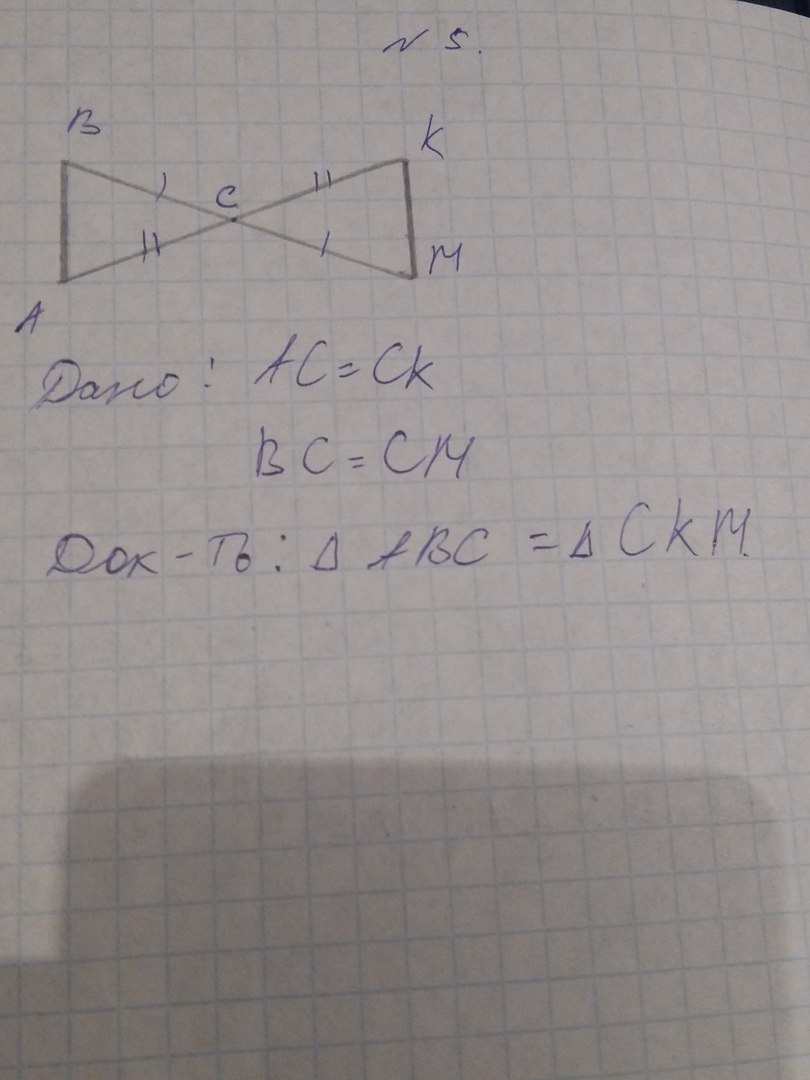 № 5.
B
K
C
M
A
Дано: AC = CK
BC = CM
Док-ть: Δ ABC = Δ CKM